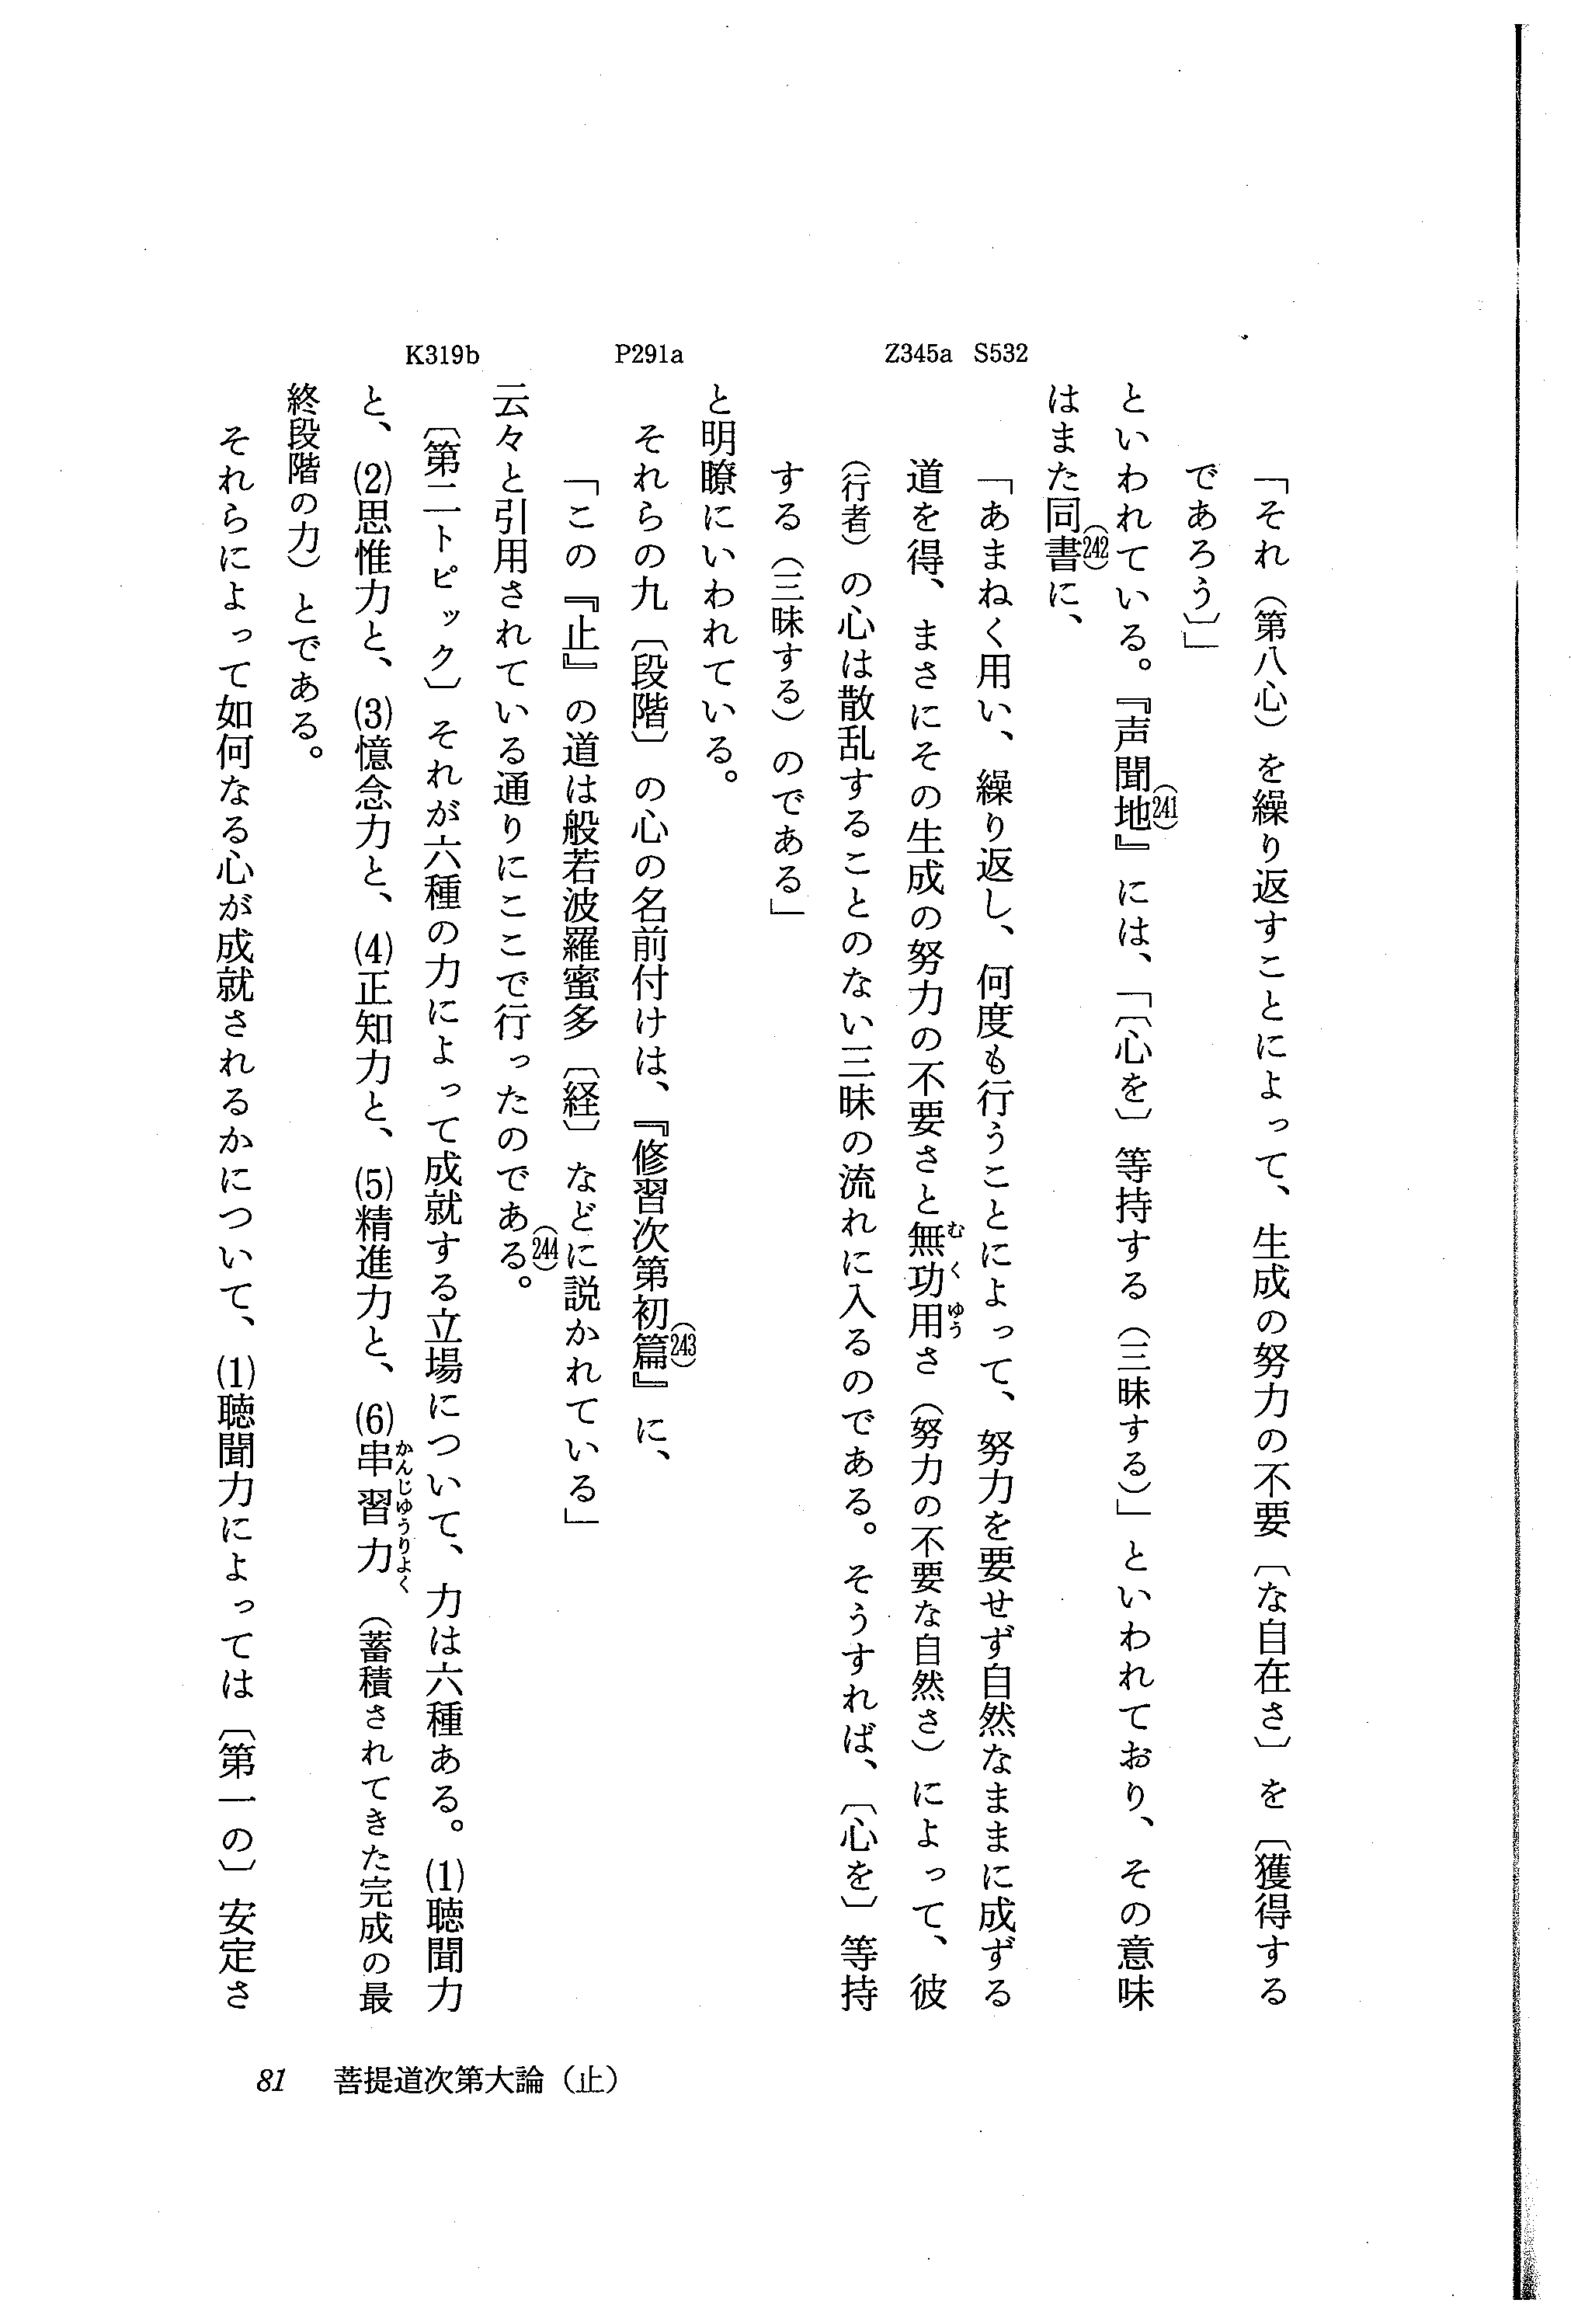 「それ（第八心）を繰り返すことによって、生成の努力の不要〔な自在さ〕を〔獲得する
であろう〕」
といわれている。『声聞地(241)』には、「〔心を〕等持する（三昧する）」といわれており、その意味
はまた同書(242)に、
「あまねく用い、繰り返し、何度も行うことによって、努力を要せず自然なままに成ずる
道を得、まさにその生成の努力の不要さと無功用さ（努力の不要な自然さ）によって、彼
むくゆう
（行者）の心は散乱することのない三昧の流れに入るのである。そうすれば、〔心を〕等持
する（三昧する）のである」
と明瞭にいわれている。
それらの九〔段階〕の心の名前付けは、『修習次第初篇(243)』に、
「この『止』の道は般若波羅蜜多〔経〕などに説かれている」
云々と引用されている通りにここで行ったのである(244)。
〔第二トピック〕それが六種の力によって成就する立場について、力は六種ある。(1)聴聞力
と、(2)思惟力と、(3)憶念力と、(4)正知力と、(5)精進力と、(6)串習力（蓄積されてきた完成の最
かんじゅうりよく
終段階の力）とである。
それらによって如何なる心が成就されるかについて、(1)聴聞力によっては〔第一の〕安定さ
S532
Z345a
P291a
K319b
81 菩提道次第大論（止）